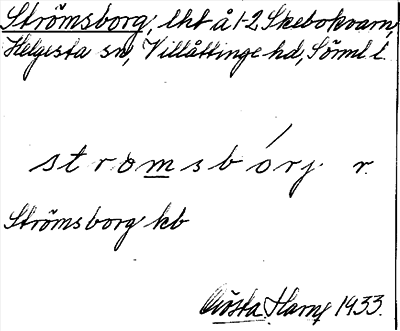 Strömsborg, lht å 1-2 Skebokvarn,
Helgesta sn, Villåttinge hd, Sörml l.
stromsbórj. r.
Strömsborg kb
Gösta Harne 1933.